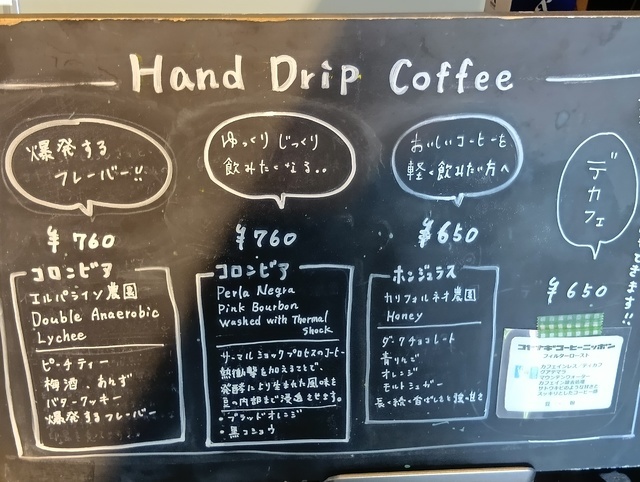 Hand Drip Coffee
爆発する
フレーバー!!
¥760
コロンビア
エルパライソ農園
Double Anaerobic
Lychee
ピーチティー
梅酒、あんず
バタークッキー
爆発するフレーバー
ゆっくりじっくり
飲みたくなる..
¥760
コロンビア
Perla Negra
Pink Bourbon
Washed with Thermal
Shock
サーマルショックプロセスのコーヒー
熱衝撃を加えることで、
発酵により生まれた風味を
豆の内部まで浸透させます。
・ブラッドオレンジ
・黒コショウ
おいしいコーヒーを
軽く飲みたい方へ
¥650
ホンジュラス
カリフォルネオ農園
Honey
ダークチョコレート
青りんご
オレンジ
モルトシュガー
デカフェ
¥650
できます!!
フィルターロースト
カフェインレス
グアテマラ
マウンテンウォーター